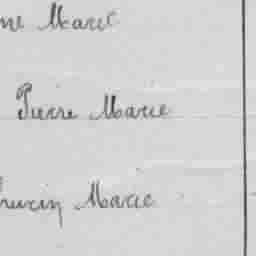 ne Marie
Pierre Marie
hurin Marie